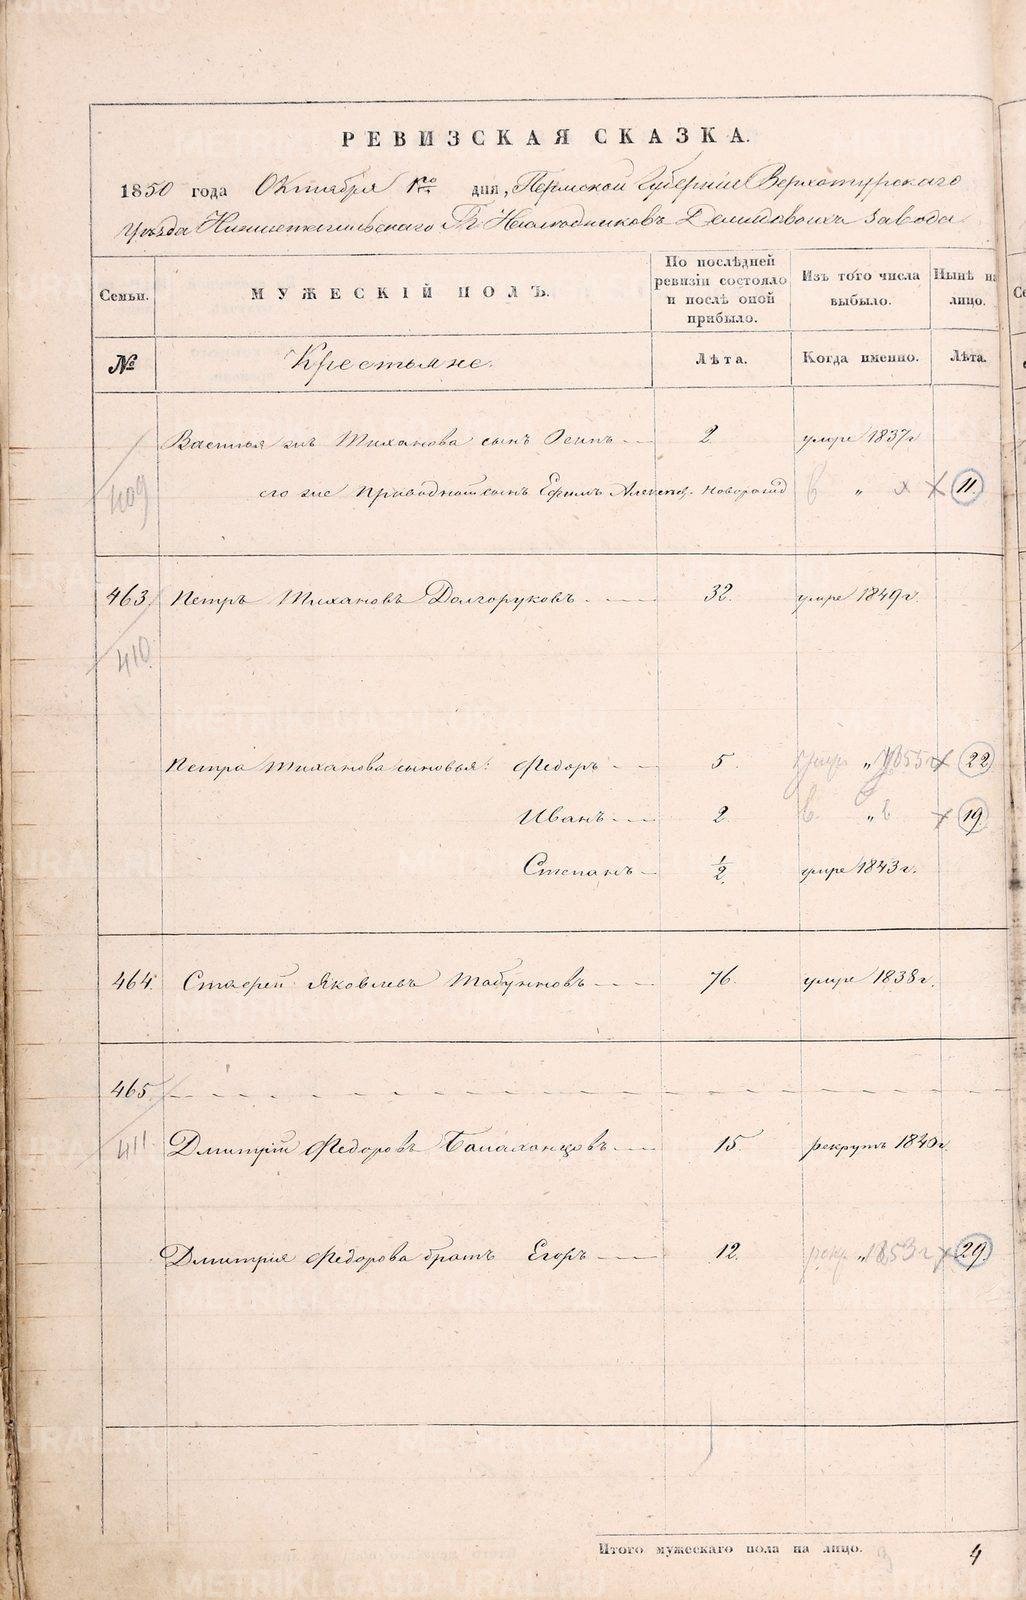 РЕВИЗСКАЯ СКАЗКА.
1850 года Октября 1го дня, Пермской Губернии Верхотурскаго
Уѣзда Нижнетагильскаго Гг. Наслѣдниковъ Демидовыхъ завода
Семьи. МУЖЕСКІЙ ПОЛЪ. По послѣдней ревизіи состояло и послѣ оной прибыло. Изъ того числа выбыло. Нынѣ на лицо.
№ Крестьяне. Лѣта. Когда именно. Лѣта.
Тиханова сынъ Осипъ 2. умре 1837г
409 его же приводной сынъ Ефимъ новорожд " 11.
463. Петръ Тихановъ Долгоруковъ 32. умре 1849г.
410.
Петра Тиханова сыновья: Федоръ 5. умр. " 1855г 22
Иванъ 2. " 19.
Степанъ 1/2. умре 1843г.
464. Яковлевъ Табунновъ 76. умре 1838г.
465.
411 Дмитрій Федоровъ 15. рекрутъ 1840г.
Дмитрія Федорова братъ Егоръ 12. рекр. " 1853г 29.
Итого мужескаго пола на лицо. 3 4
METRIKI.GASU-URAL.RU